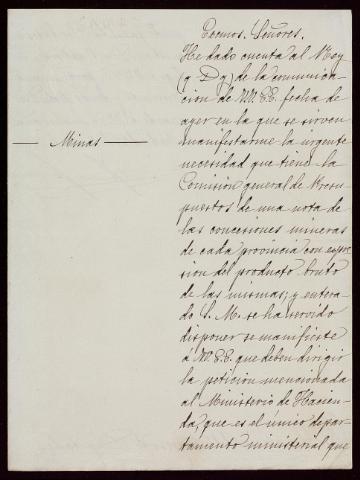 Excmos. Señores.
He dado cuenta al Rey
(q D g) de la comunica-
cion de VV. E.E. fecha de
ayer en la que se sirven
manifestarme la urgente
necesidad que tiene la
— Minas —
Comision general de Presu-
puestos de una nota de
las concesiones mineras
de cada provincia con expre-
sion del producto bruto
de las mismas; y entera-
do S. M. se ha servido
disponer se manifieste
á VV. E.E. que deben dirigir
la peticion mencionada
al Ministerio de Hacien-
da, que es el único depar-
tamento ministerial que